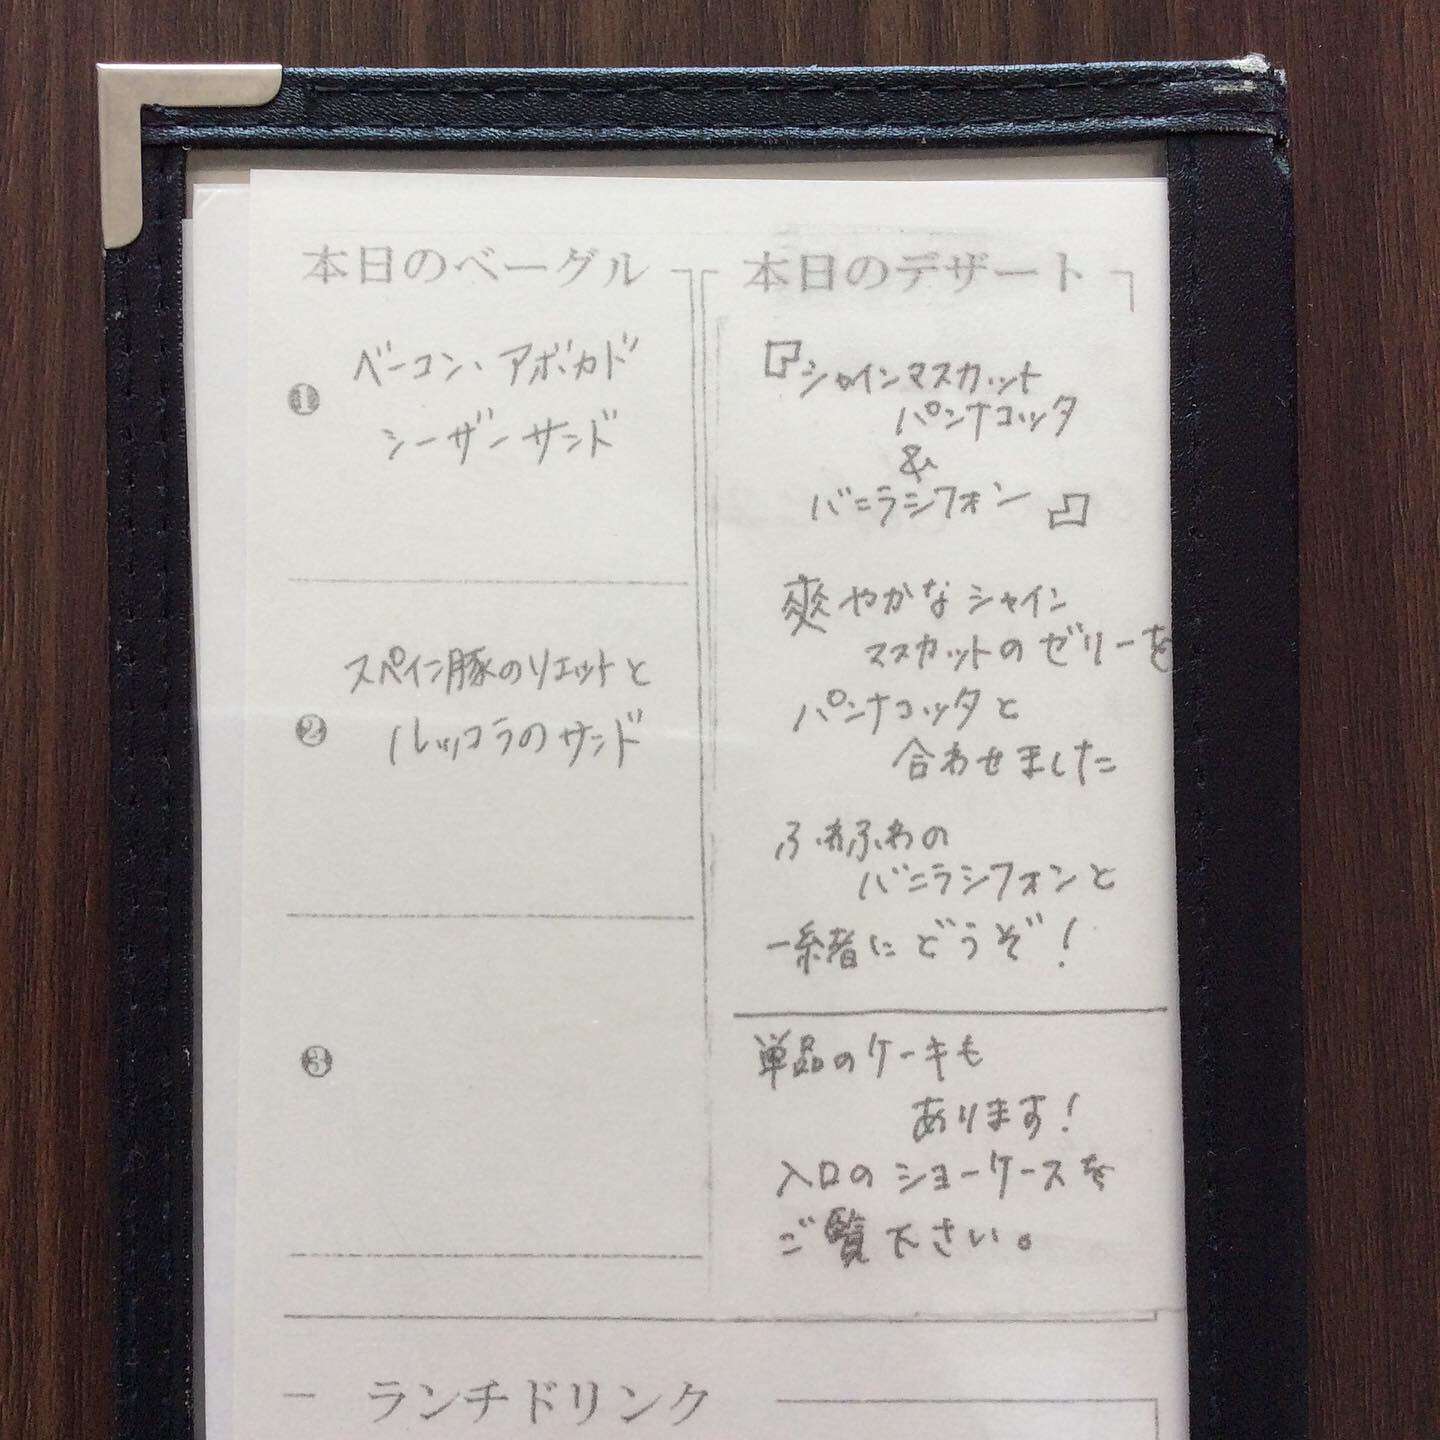 本日のベーグル
❶
ベーコン、アボカド
シーザーサンド
❷
スペイン豚のリエットと
ルッコラのサンド
❸
本日のデザート
『シャインマスカット
パンナコッタ
&
バニラシフォン』
爽やかなシャイン
マスカットのゼリーを
パンナコッタと
合わせました
ふわふわの
バニラシフォンと
一緒にどうぞ!
単品のケーキも
あります!
入口のショーケースを
ご覧下さい。
ランチドリンク